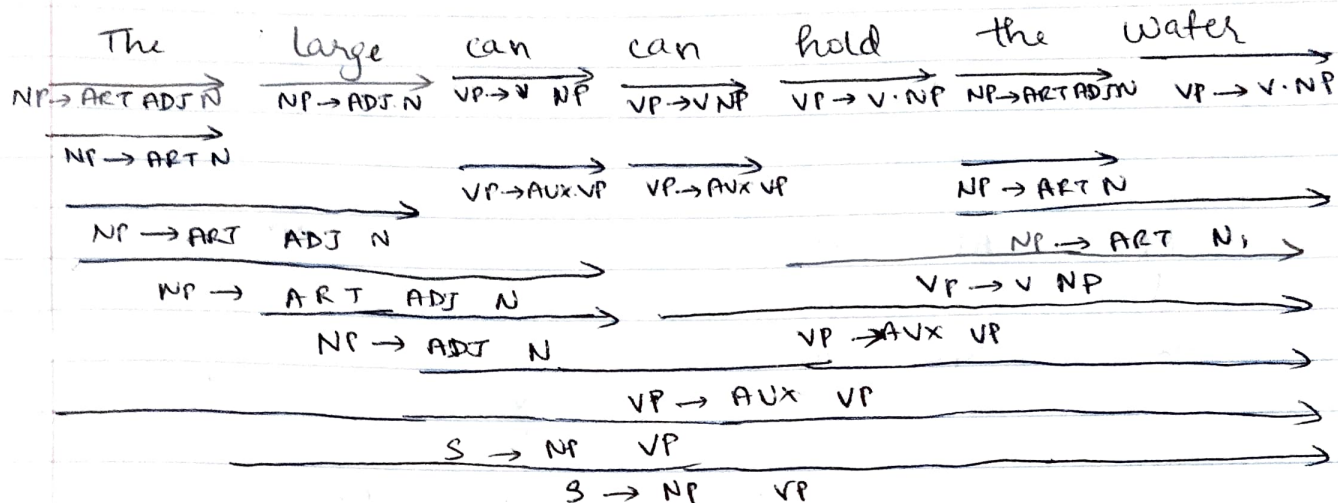 The large can can hold the water
NP → ART ADJ N NP → ADJ. N VP → V NP VP → V NP VP → V. NP NP → ART ADJ N VP → V. NP
NP → ART N
VP → AUX. VP VP → AUX VP NP → ART N
NP → ART ADJ N NP → ART N,
NP → ART ADJ N VP → V NP
NP → ADJ N VP → AUX VP
VP → AUX VP
S → NP VP
S → NP VP